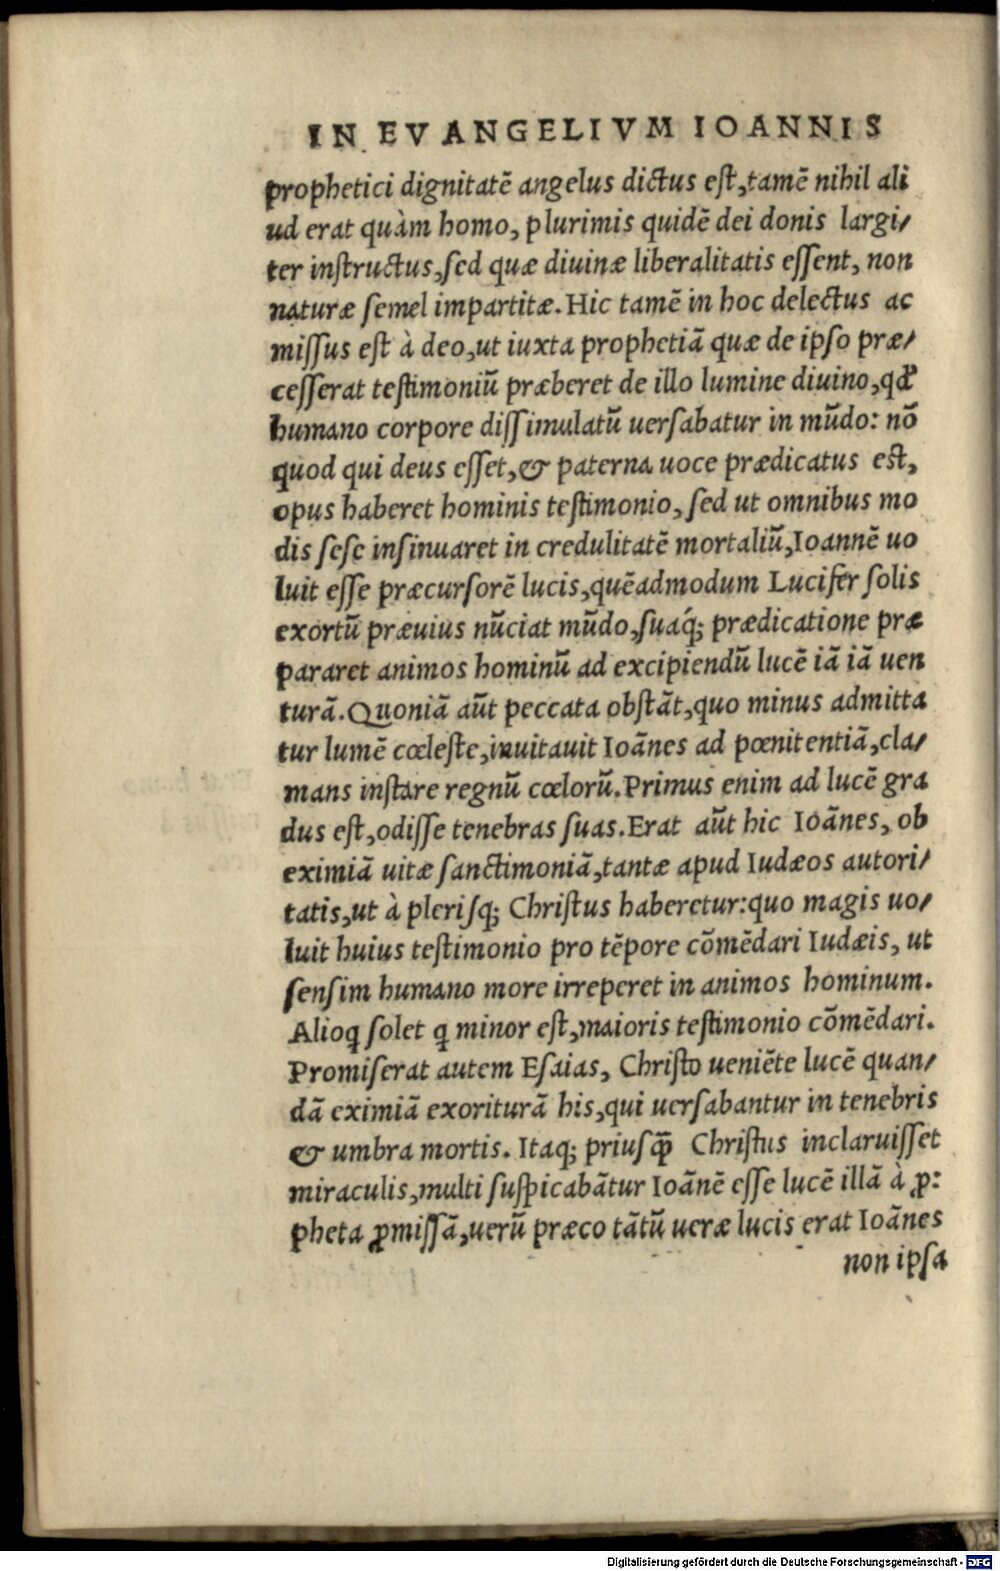 IN EVANGELIVM IOANNIS
prophetici dignitatē angelus dictus eſt,tamē nihil ali
ud erat quàm homo, plurimis quidē dei donis largi/
ter inſtructus,ſed quæ diuinæ liberalitatis eſſent, non
naturæ ſemel impartitæ. Hic tamē in hoc delectus ac
miſſus eſt à deo,ut iuxta prophetiā quæ de ipſo præ/
ceſſerat teſtimoniū præberet de illo lumine diuino,qđ
humano corpore diſſimulatū uerſabatur in mūdo: nō
quod qui deus eſſet,& paterna uoce prædicatus eſt,
opus haberet hominis teſtimonio, ſed ut omnibus mo
dis ſeſe inſinuaret in credulitatē mortaliū,Ioannē uo
luit eſſe præcurſorē lucis,quēadmodum Lucifer ſolis
exortū præuius nūciat mūdo,ſuaq́; prædicatione præ
pararet animos hominū ad excipiendū lucē iā iā uen
turā.Quoniā aūt peccata obſtāt,quo minus admitta
tur lumē cœleſte,inuitauit Ioānes ad pœnitentiā,cla/
mans inſtare regnū cœlorū.Primus enim ad lucē gra
dus eſt,odiſſe tenebras ſuas.Erat aūt hic Ioānes, ob
eximiā uitæ ſanctimoniā,tantæ apud Iudæos autori/
tatis,ut à pleriſq; Chriſtus haberetur:quo magis uo/
luit huius teſtimonio pro tēpore cōmēdari Iudæis, ut
ſenſim humano more irreperet in animos hominum.
Alioq̃ ſolet q̃ minor eſt,maioris teſtimonio cōmēdari.
Promiſerat autem Eſaias, Chriſto ueniēte lucē quan/
dā eximiā exoriturā his,qui uerſabantur in tenebris
& umbra mortis. Itaq; priuſq̄ Chriſtus inclaruiſſet
miraculis,multi ſuſpicabātur Ioānē eſſe lucē illā à ꝓ:
pheta ꝓmiſſā,uerū præco tātū ueræ lucis erat Ioānes
non ipſa
Digitalisierung gefördert durch die Deutsche Forschungsgemeinschaft - DFG